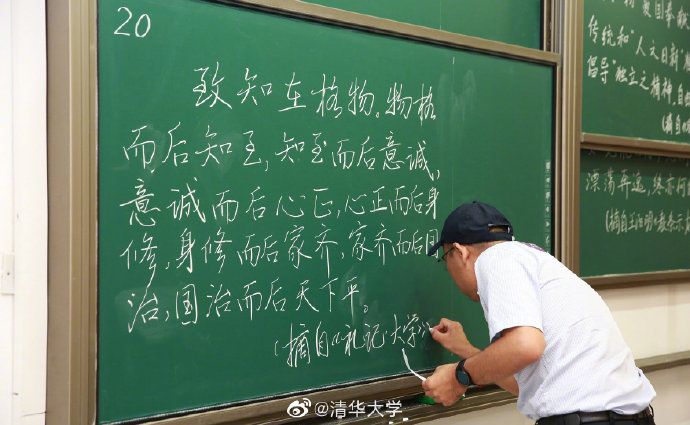 20
致知在格物。物格
而后知至,知至而后意诚,
意诚而后心正,心正而后身
修,身修而后家齐,家齐而后国
治,国治而后天下平。
(摘自《礼记·大学》
传统和"人文日新"
倡导"独立之精神,自
(摘自
漂荡奔逸,终亦何
(摘自王阳明《教条示
@清华大学